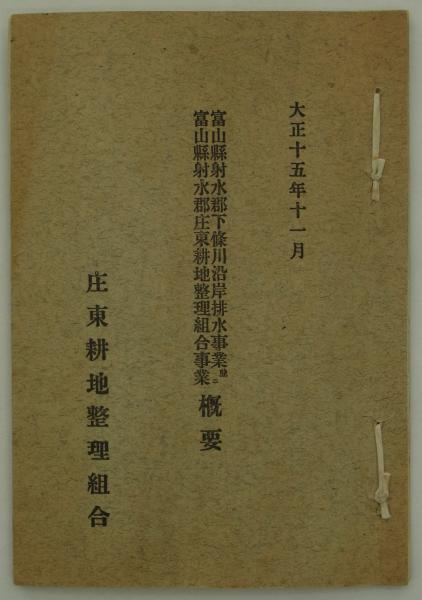 大正十五年十一月
富山縣射水郡下條川沿岸排水事業並ニ
富山縣射水郡庄東耕地整理組合事業
概要
庄東耕地整理組合